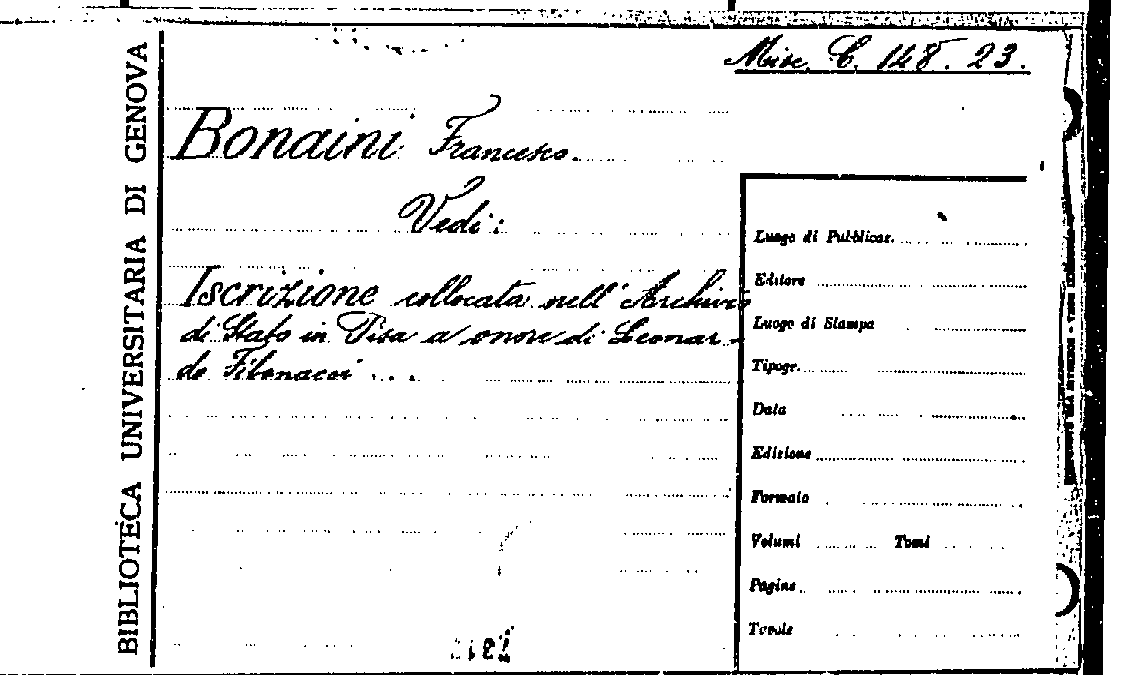 Misc. C. 148. 23.
BIBLIOTECA UNIVERSITARIA DI GENOVA
Bonaini Francesco.
Vedi:
Iscrizione collocata nell' Archivio
di Stato in Pisa a onore di Leonar-
do Fibonacci ...
Luogo di Pubblicaz.
Editore
Luogo di Stampa
Tipogr.
Data
Edizione
Formato
Volumi Tomi
Pagine
Tavole